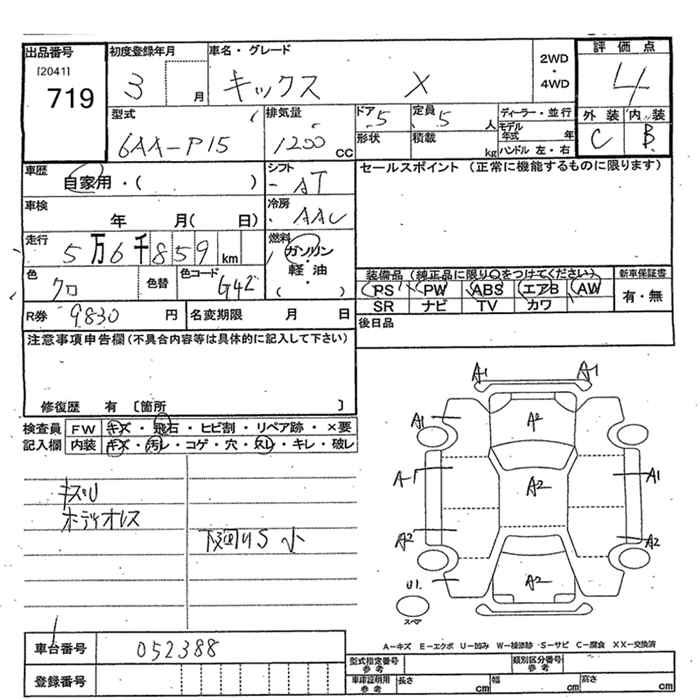 出品番号 初度登録年月 車名・グレード 2WD・4WD 評価点
[2041]
719 3 月 キックス X 4
型式 排気量 ドア 5 定員 5 人 ディーラー・並行 外装 内装
6AA-P15 1200 CC 形状 積載 kg モデル年式 年 C B
ハンドル 左・右
車歴 自家用・( ) シフト AT セールスポイント (正常に機能するものに限ります)
車検 年 月( 日) 冷房 AAC
走行 5万6千859km 燃料 ガソリン・軽油 ( )
色 クロ 色替 色コード G42 装備品 (純正品に限り○をつけてください) 新車保証書
PS PW ABS エアB AW 有・無
SR ナビ TV カワ
R券 9830 円 名変期限 月 日 後日品
注意事項申告欄 (不具合内容等は具体的に記入して下さい)
修復歴 有 〔箇所 〕
検査員 FW キズ・飛石・ヒビ割・リペア跡・×要
記入欄 内装 キズ・汚レ・コゲ・穴・スレ・キレ・破レ
キズU
ボディオレス
下廻りS 小
A1 A1
A1 A2
A1 A2 A1
A2 A2
U1. A2
スペア
車台番号 052388
A-キズ E-エクボ U-凹み W-補修跡 S-サビ C-腐食 XX-交換済
登録番号
型式指定番号 参考 類別区分番号 参考
車庫証明用 参考 長さ cm 幅 cm 高さ cm